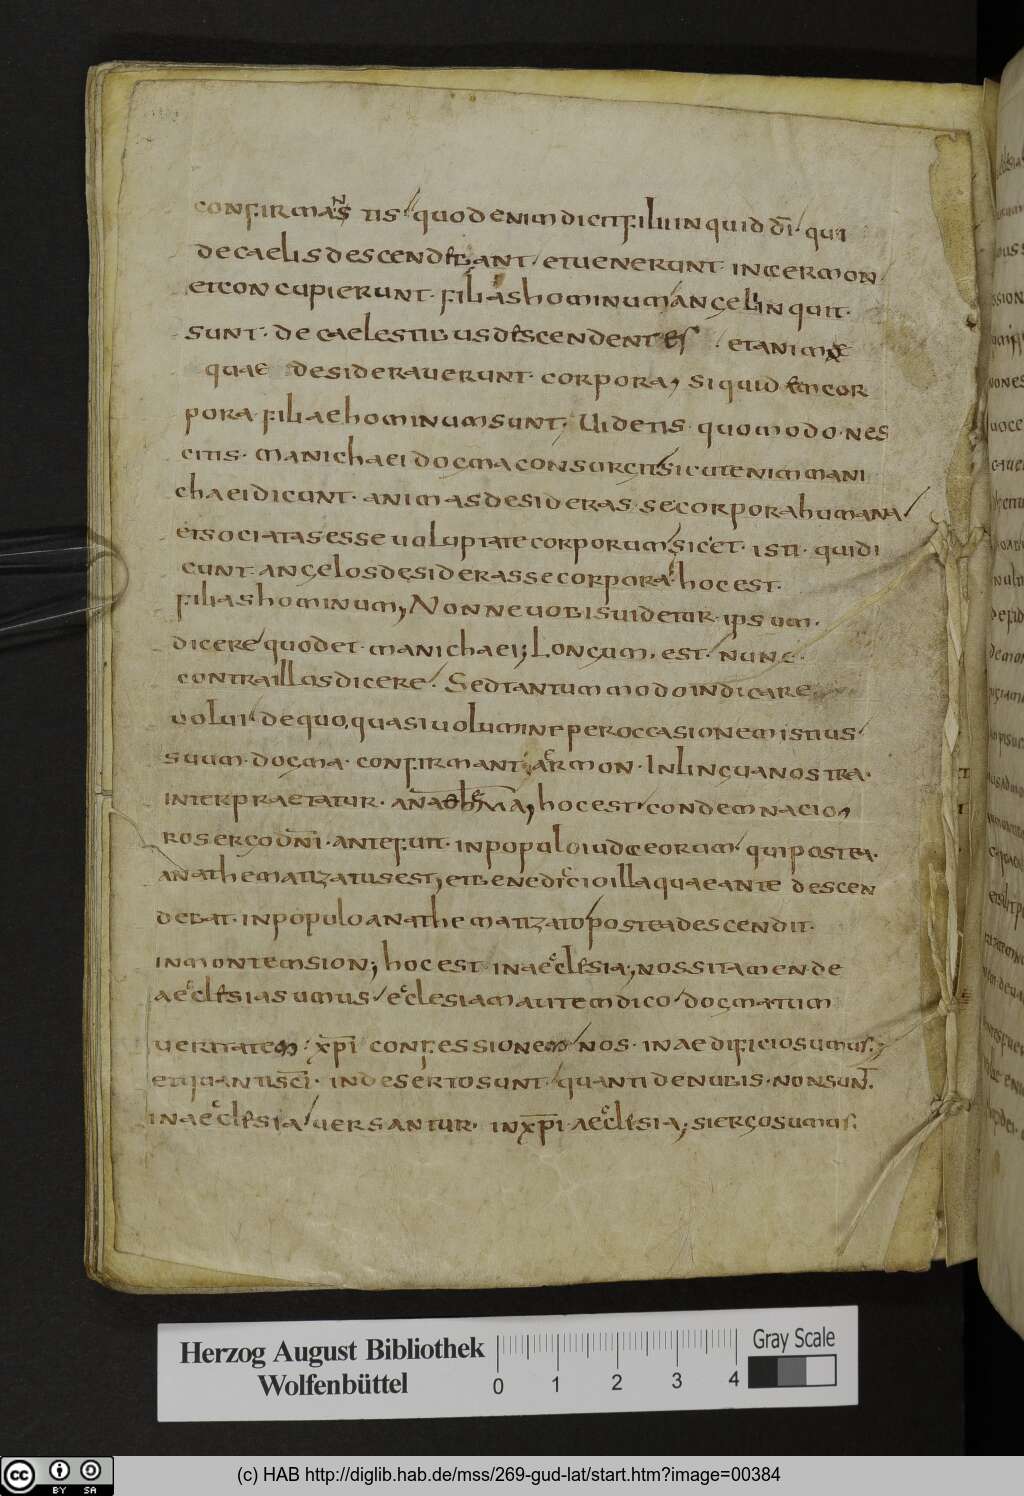 confirmaſ̄ tis quod enim dicit filii inquid d̄i qui
de caelis descendebant et uenerunt in cermon
et concupierunt filias hominum angeli inquit
sunt de caelestibus descendentes et animae
quae desiderauerunt corpora, si quid in cor
pora filiae hominum sunt, Uidetis quomodo nes
citis manichaei dogma consurgit sicut enim mani
chaei dicunt animas desiderasse corpora humana
et sociatas esse uoluptate corporum sic et isti qui di
cunt angelos desiderasse corpora hoc est
filias hominum, Nonne uobis uidetur ipsum
dicere quod et manichaei; Longum est nunc
contra illos dicere. Sed tantum modo indicare
uolui de quo, quasi uolumine per occasionem istius
suum dogma confirmant ermon. In lingua nostra
interpraetatur. anathema, hoc est condemnacio,
ros ergo dn̄i ante fuit in populo iudaeorum qui postea
anathematizatus est, et benedictio illa quae ante descen
debat in populo anathematizato postea descendit
in montem sion, hoc est in aecclesia, nos si tamen de
aecclesia sumus ecclesiam autem dico dogmatum
ueritatem xp̄i confessionem nos in aedificio sumus.
et quanti sc̄i in deserto sunt quanti de nubis non sunt
in aecclesia uersantur in xp̄i aecclesia, si ergo sumus
Herzog August Bibliothek
Wolfenbüttel
0 1 2 3 4
Gray Scale
cc BY SA
(c) HAB http://diglib.hab.de/mss/269-gud-lat/start.htm?image=00384